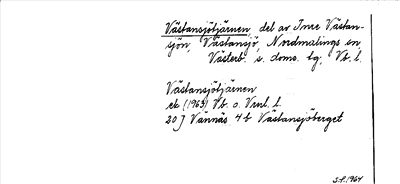 Västansjötjärnen, del av Inre Västan-
sjön, Västansjö, Nordmalings sn
Västerb. s. doms. tg, Vb. l.
Västansjötjärnen
ek (1963) Vb. o. Vrml. l.
20 J Vännäs 4 b Västansjöberget
S.P. 1964